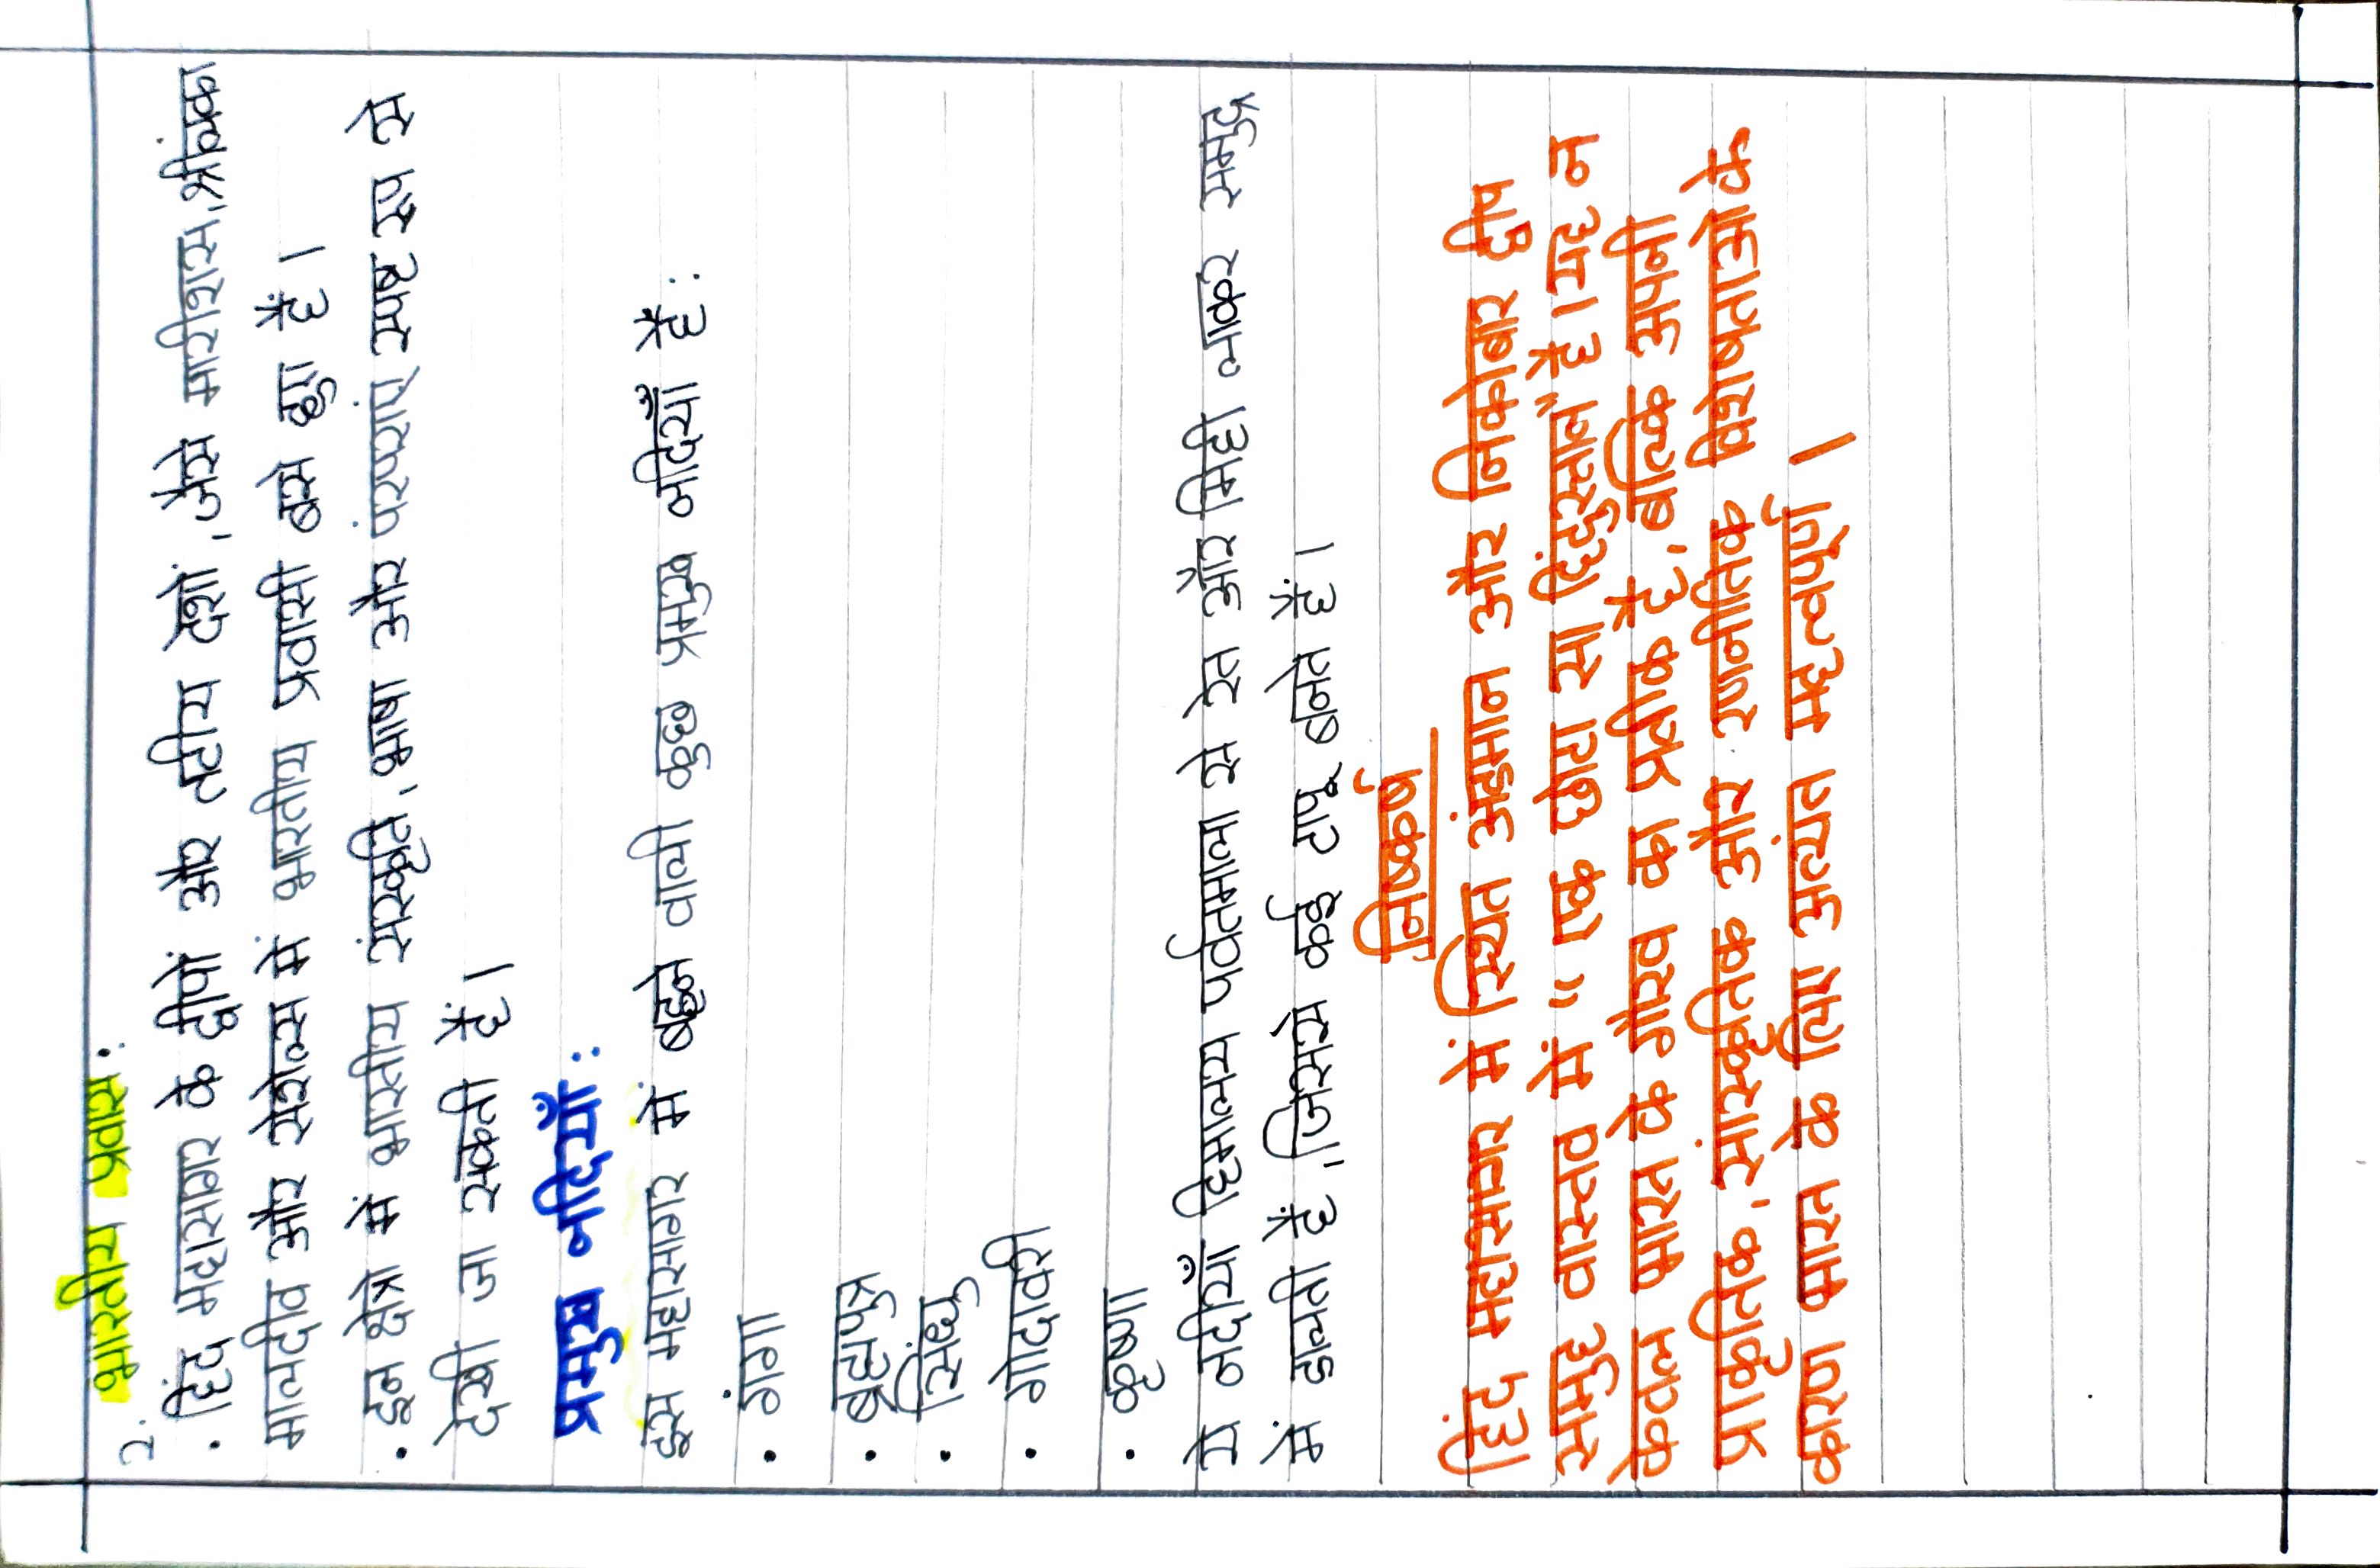 2. भारतीय प्रवास:
. हिंद महासागर के द्वीपों और तटीय देशों, जैसे मारीशस, श्रीलंका
मालदीव और सेशेल्स में भारतीय प्रवासी बसे हुए हैं।
. इन क्षेत्रो में भारतीय संस्कृति, भाषा और परंपराएं स्पष्ट रूप से
देखी जा सकती हैं।
प्रमुख नदियाँ:
इस महासागर में बहने वाली कुछ प्रमुख नदियाँ हैं:
. गंगा
. ब्रह्मपुत्र
. सिंधु
. गोदावरी
. कृष्णा
ये नदीयाँ हिमालय पर्वतमाला से रेत और मिट्टी लाकर समुद्र
में डालती हैं, जिससे कई टापू बनते हैं।
निष्कर्ष
हिंद महासागर में स्थित अंडमान और निकोबार द्वीप
समुह वास्तव में "एक छोटा सा हिंदुस्तान" है। यह न
केवल भारत के गौरव का प्रतीक है, बल्कि अपनी
प्राकृतिक, सांस्कृतिक और रणनीतिक विशेषताओ के
कारण भारत के लिए अत्यंत महत्वपूर्ण।